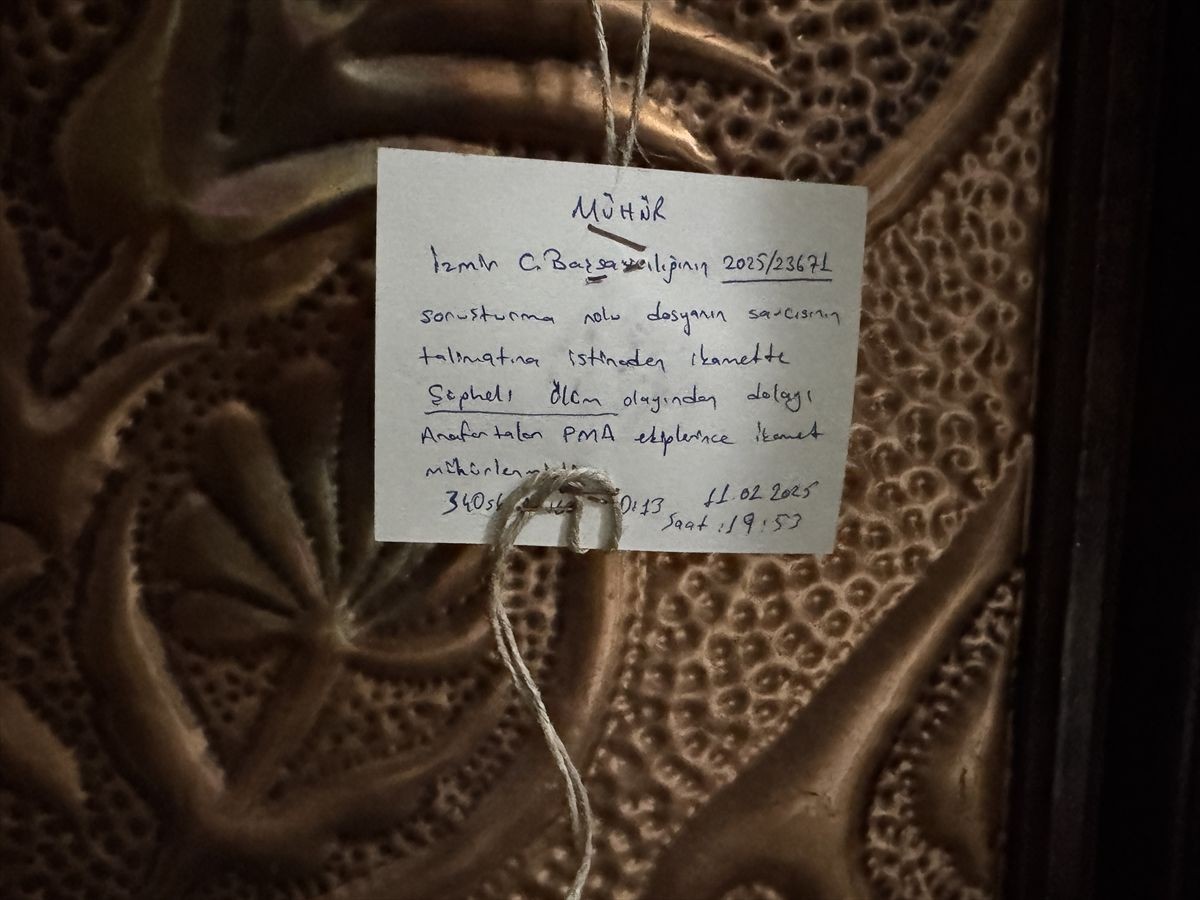 MÜHÜR
İzmir C. Başsavcılığının 2025/23671
soruşturma nolu dosyanın savcısının
talimatına istinaden ikamette
Şüpheli Ölüm olayından dolayı
Anafartalar PMA ekiplerince ikamet
3405 D:13 11.02.2025
Saat :19:53